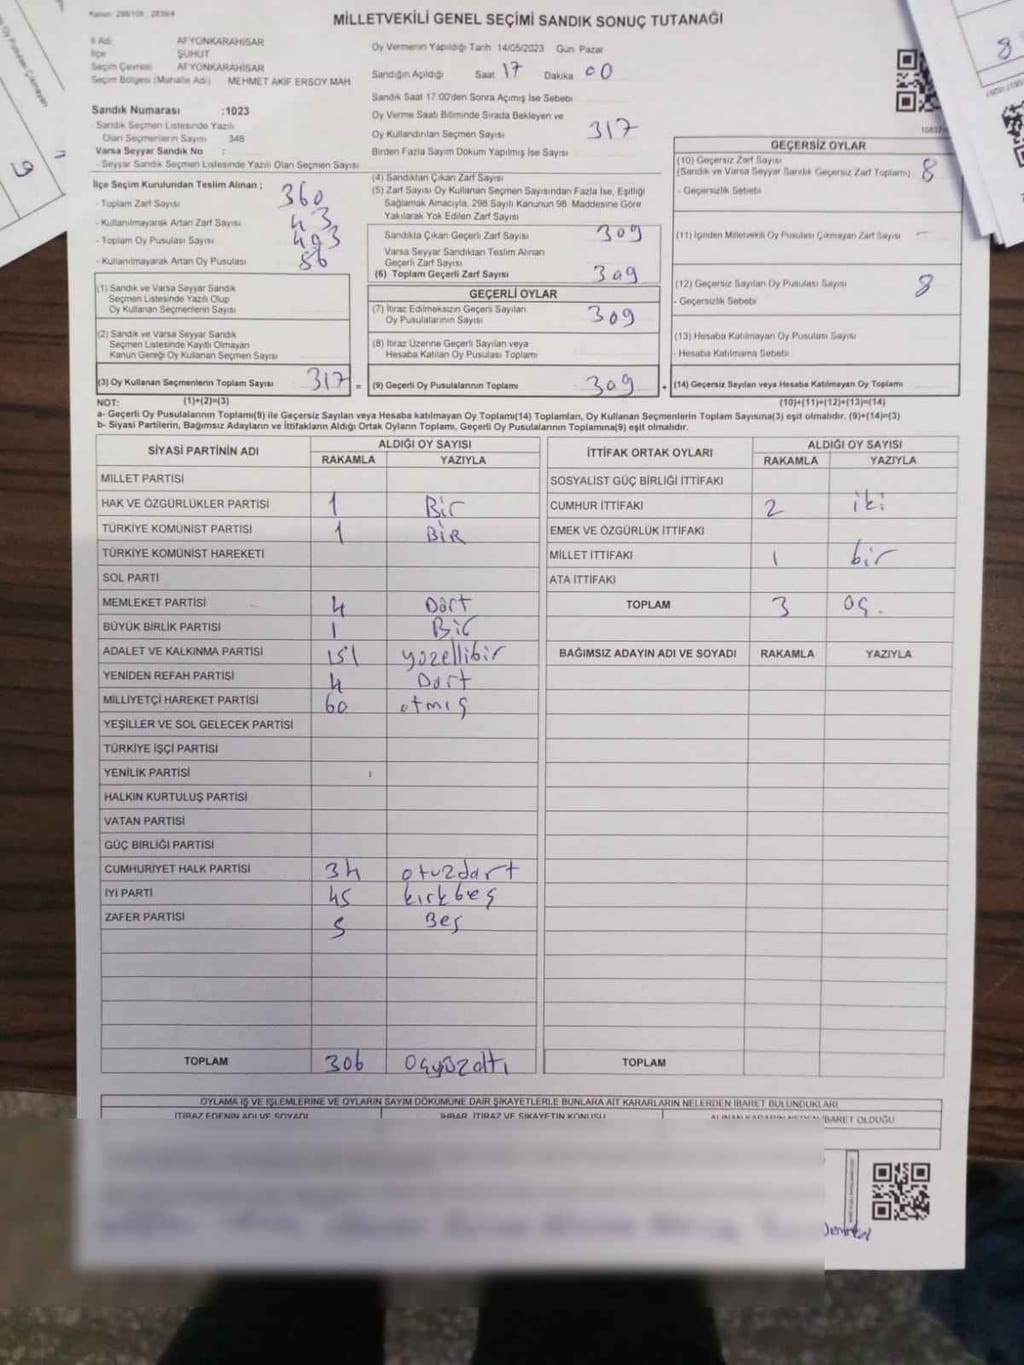 MİLLETVEKİLİ GENEL SEÇİMİ SANDIK SONUÇ TUTANAĞI
İl Adı AFYONKARAHİSAR
İlçe ŞUHUT
Seçim Çevresi AFYONKARAHİSAR
Seçim Bölgesi (Mahalle Adı) MEHMET AKİF ERSOY MAH
Sandık Numarası :1023
- Sandık Seçmen Listesinde Yazılı
Olan Seçmenlerin Sayısı 348
Varsa Seyyar Sandık No :
- Seyyar Sandık Seçmen Listesinde Yazılı Olan Seçmen Sayısı
Oy Vermenin Yapıldığı Tarih 14/05/2023 Gün Pazar
Sandığın Açıldığı Saat 17 Dakika 00
Sandık Saat 17:00'den Sonra Açımış İse Sebebi
Oy Verme Saati Bitiminde Sırada Bekleyen ve
Oy Kullandırılan Seçmen Sayısı 317
Birden Fazla Sayım Döküm Yapılmış İse Sayısı
İlçe Seçim Kurulundan Teslim Alınan ;
- Toplam Zarf Sayısı 360
- Kullanılmayarak Artan Zarf Sayısı 43
- Toplam Oy Pusulası Sayısı 403
- Kullanılmayarak Artan Oy Pusulası 86
(1) Sandık ve Varsa Seyyar Sandık
Seçmen Listesinde Yazılı Olup
Oy Kullanan Seçmenlerin Sayısı
(2) Sandık ve Varsa Seyyar Sandık
Seçmen Listesinde Kayıtlı Olmayan
Kanun Gereği Oy Kullanan Seçmen Sayısı
(3) Oy Kullanan Seçmenlerin Toplam Sayısı 317 =
(4) Sandıktan Çıkan Zarf Sayısı
(5) Zarf Sayısı Oy Kullanan Seçmen Sayısından Fazla İse, Eşitliği
Sağlamak Amacıyla, 298 Sayılı Kanunun 98. Maddesine Göre
Yakılarak Yok Edilen Zarf Sayısı
Sandıkta Çıkan Geçerli Zarf Sayısı 309
Varsa Seyyar Sandıktan Teslim Alınan
Geçerli Zarf Sayısı
(6) Toplam Geçerli Zarf Sayısı 309
GEÇERLİ OYLAR
(7) İtiraz Edilmeksizin Geçerli Sayılan
Oy Pusulalarının Sayısı 309
(8) İtiraz Üzerine Geçerli Sayılan veya
Hesaba Katılan Oy Pusulası Toplamı
(9) Geçerli Oy Pusulalarının Toplamı 309 +
GEÇERSİZ OYLAR
(10) Geçersiz Zarf Sayısı
(Sandık ve Varsa Seyyar Sandık Geçersiz Zarf Toplamı) 8
- Geçersizlik Sebebi
(11) İçinden Milletvekili Oy Pusulası Çıkmayan Zarf Sayısı -
(12) Geçersiz Sayılan Oy Pusulası Sayısı 8
- Geçersizlik Sebebi
(13) Hesaba Katılmayan Oy Pusulası Sayısı
- Hesaba Katılmama Sebebi
(14) Geçersiz Sayılan veya Hesaba Katılmayan Oy Toplamı
NOT: (1)+(2)=(3) (10)+(11)+(12)+(13)=(14)
a- Geçerli Oy Pusulalarının Toplamı(9) ile Geçersiz Sayılan veya Hesaba katılmayan Oy Toplamı(14) Toplamları, Oy Kullanan Seçmenlerin Toplam Sayısına(3) eşit olmalıdır. (9)+(14)=(3)
b- Siyasi Partilerin, Bağımsız Adayların ve İttifakların Aldığı Ortak Oyların Toplamı, Geçerli Oy Pusulalarının Toplamına(9) eşit olmalıdır.
SİYASİ PARTİNİN ADI ALDIĞI OY SAYISI
RAKAMLA YAZIYLA
MİLLET PARTİSİ
HAK VE ÖZGÜRLÜKLER PARTİSİ 1 Bir
TÜRKİYE KOMÜNİST PARTİSİ 1 BİR
TÜRKİYE KOMÜNİST HAREKETİ
SOL PARTİ
MEMLEKET PARTİSİ 4 Dört
BÜYÜK BİRLİK PARTİSİ 1 Bir
ADALET VE KALKINMA PARTİSİ 151 yüzellibir
YENİDEN REFAH PARTİSİ 4 Dört
MİLLİYETÇİ HAREKET PARTİSİ 60 otmış
YEŞİLLER VE SOL GELECEK PARTİSİ
TÜRKİYE İŞÇİ PARTİSİ
YENİLİK PARTİSİ
HALKIN KURTULUŞ PARTİSİ
VATAN PARTİSİ
GÜÇ BİRLİĞİ PARTİSİ
CUMHURİYET HALK PARTİSİ 34 otuzdört
İYİ PARTİ 45 kırkbeş
ZAFER PARTİSİ 5 Beş
TOPLAM 306 üçyüzaltı
İTTİFAK ORTAK OYLARI ALDIĞI OY SAYISI
RAKAMLA YAZIYLA
SOSYALİST GÜÇ BİRLİĞİ İTTİFAKI
CUMHUR İTTİFAKI 2 iki
EMEK VE ÖZGÜRLÜK İTTİFAKI
MİLLET İTTİFAKI 1 bir
ATA İTTİFAKI
TOPLAM 3 üç.
BAĞIMSIZ ADAYIN ADI VE SOYADI RAKAMLA YAZIYLA
TOPLAM
OYLAMA İŞ VE İŞLEMLERİNE VE OYLARIN SAYIM DÖKÜMÜNE DAİR ŞİKAYETLERLE BUNLARA AİT KARARLARIN NELERDEN İBARET BULUNDUKLARI
İTİRAZ EDENİN ADI VE SOYADI İHBAR, İTİRAZ VE ŞİKAYETİN KONUSU ALINAN KARARIN NEDEN İBARET OLDUĞU